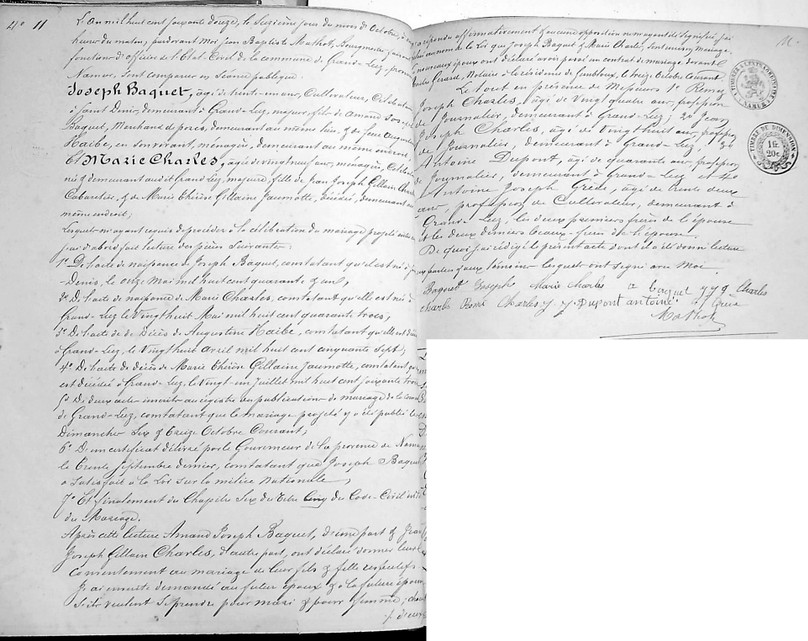 N° 11
L'an mil huit cent soixante douze, le seizième jour du mois d'Octobre, à
heures du matin, pardevant Moi Jean Baptiste Mathot, Bourgmestre
fonctions d'officier de l'Etat Civil de la commune de Grand-Leez, province
Namur, sont comparus en séance publique
Joseph Baquet, âgé de trente-un ans, Cultivateur, Célibataire
à Saint Denis, demeurant à Grand-Leez, majeur, fils d'Amand Joseph
Baquet, Marchand de porcs, demeurant au même lieu, & de feue Augustine
Haibe, en son vivant, ménagère, demeurant au même endroit
Et Marie Charles, âgée de vingt neuf ans, ménagère, Célibataire
née & demeurant audit Grand-Leez, majeure, fille de Jean Joseph Gillain Charles
Cabaretier, & de Marie Thérèse Gillaine Jaumotte, décédée, demeurant au
même endroit;
Lesquels m'ayant requis de procéder à la célébration du mariage projeté entre eux
j'ai d'abord fait lecture des pièces suivantes:
1° De l'acte de naissance de Joseph Baquet, constatant qu'il est né à
Denis, le onze Mai mil huit cent quarante & un,
2° De l'acte de naissance de Marie Charles, constatant qu'elle est née à
Grand-Leez le Vingt huit Mai mil huit cent quarante trois,
3° De l'acte de décès de Augustine Haibe, constatant qu'elle est décédée
à Grand-Leez, le Vingt huit Avril mil huit cent cinquante sept;
4° De l'acte de décès de Marie Thérèse Gillaine Jaumotte, constatant qu'elle
est décédée à Grand-Leez, le Vingt-un Juillet mil huit cent soixante trois
5° De deux actes inscrits au registre aux publications de mariage de la commune
de Grand-Leez, constatant que le mariage projeté y a été publié les
Dimanches Six & Treize Octobre Courant,
6° D'un certificat délivré par le Gouverneur de la province de Namur
le Trente Septembre dernier, constatant que Joseph Baquet
a satisfait à la Loi sur la milice Nationale;
7° Et finalement du Chapitre Six du Titre Cinq du Code Civil intitulé
du Mariage.
Après cette lecture Amand Joseph Baquet, d'une part & Jean
Joseph Gillain Charles, d'autre part, ont déclaré donner leur
Consentement au mariage de leur fils & fille respectifs.
J'ai ensuite demandé au futur époux & à la future épouse
S'ils veulent se prendre pour mari & pour femme; chacun
d'eux
ayant répondu affirmativement & aucune opposition ne m'ayant été signifiée j'ai
au nom de la Loi que Joseph Baquet & Marie Charles, sont unis en Mariage.
nouveaux époux ont déclaré avoir passé un contrat de mariage devant
Gérard, Notaire à la résidence de Gembloux, le treize Octobre Courant
Le tout en présence de Messieurs 1° Remy
Joseph Charles, âgé de Vingt quatre ans, profession
de Journalier, demeurant à Grand-Leez; 2° Jean
Joseph Charles, âgé de Vingt huit ans, profession
de Journalier, demeurant à Grand-Leez, 3°
Antoine Dupont, âgé de quarante ans, profession
de Journalier, demeurant à Grand-Leez & 4°
Antoine Joseph Grède, âgé de trente deux
ans, profession de Cultivateur, demeurant à
Grand-Leez, les deux premiers frères de l'épouse
et les deux derniers beaux-frères de l'épouse.
De quoi j'ai rédigé le présent acte dont il a été donné lecture
aux parties & aux témoins lesquels ont signé avec Moi.
Baquet Joseph Marie Charles a baquet J J G Charles
Charles Remi Charles J J Dupont antoine
Mathot
TIMBRE DE DIMENSION
1 fr.
20 c.
NAMUR